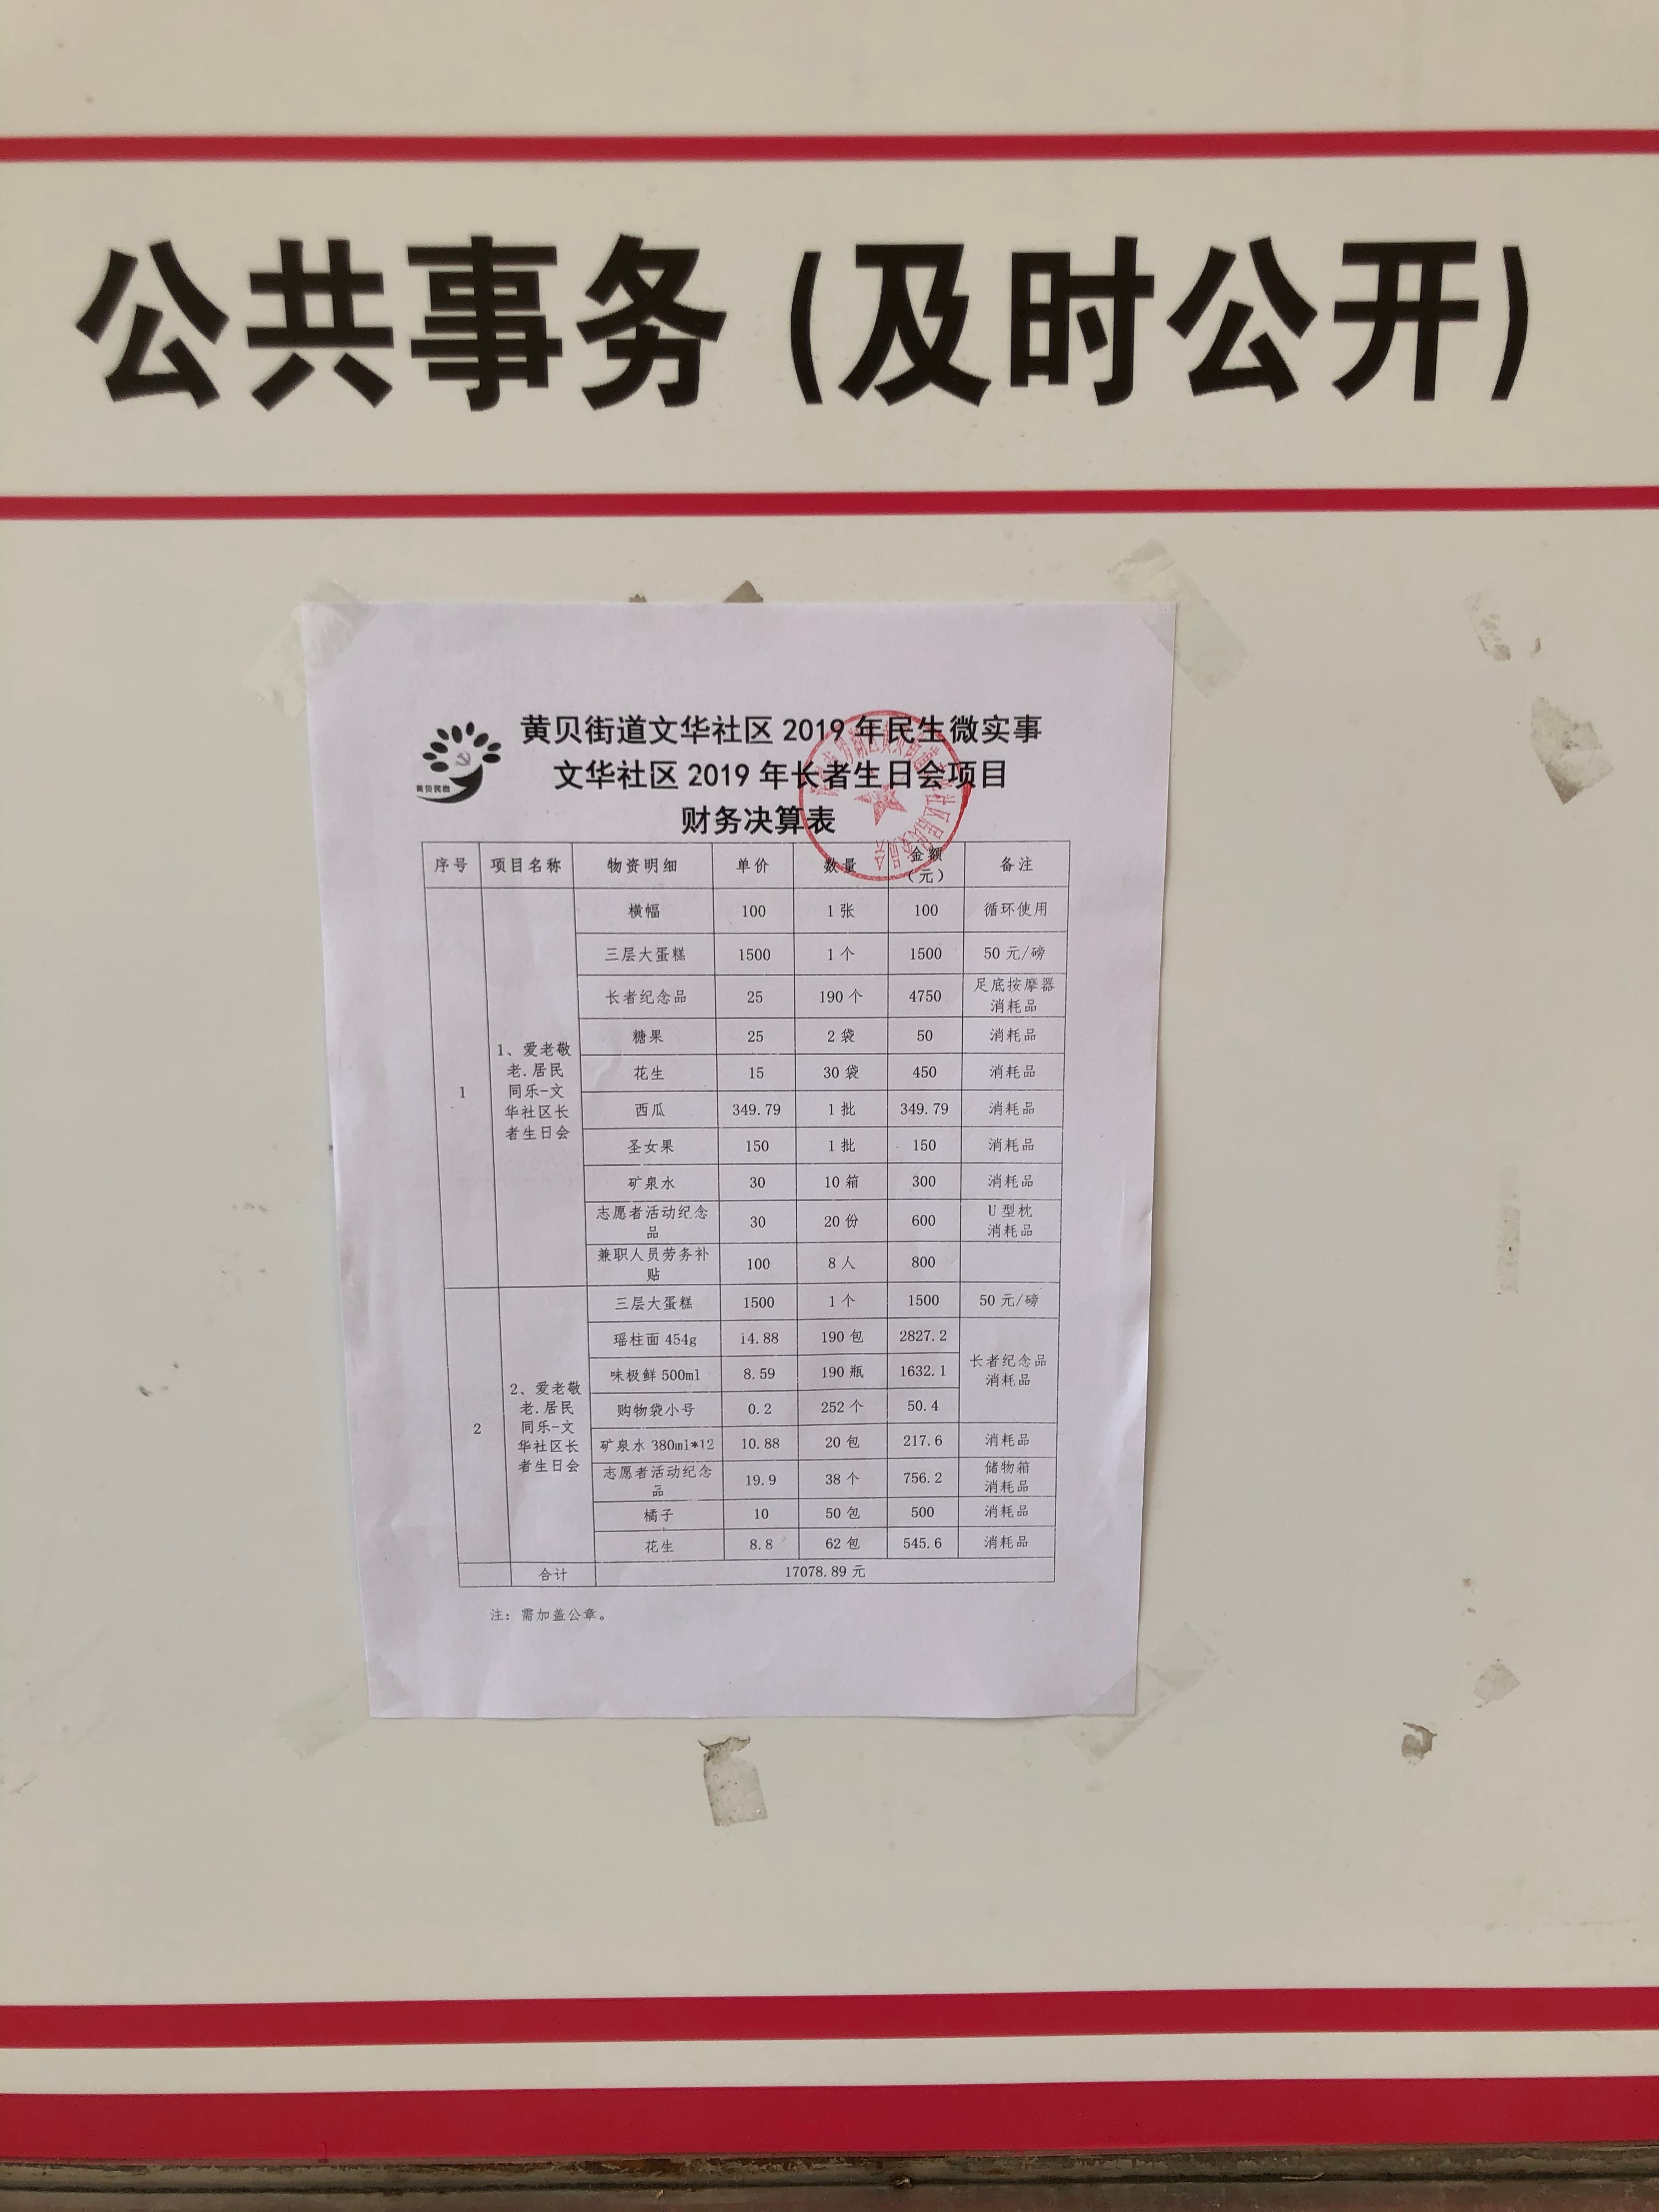 公共事务 (及时公开)
黄贝民微
黄贝街道文华社区 2019 年民生微实事
文华社区 2019 年长者生日会项目
财务决算表
序号 项目名称 物资明细 单价 数量 金额（元） 备注
1 1、爱老敬老.居民同乐-文华社区长者生日会
横幅 100 1 张 100 循环使用
三层大蛋糕 1500 1 个 1500 50 元/磅
长者纪念品 25 190 个 4750 足底按摩器消耗品
糖果 25 2 袋 50 消耗品
花生 15 30 袋 450 消耗品
西瓜 349.79 1 批 349.79 消耗品
圣女果 150 1 批 150 消耗品
矿泉水 30 10 箱 300 消耗品
志愿者活动纪念品 30 20 份 600 U 型枕消耗品
兼职人员劳务补贴 100 8 人 800
2 2、爱老敬老.居民同乐-文华社区长者生日会
三层大蛋糕 1500 1 个 1500 50 元/磅
瑶柱面 454g 14.88 190 包 2827.2 长者纪念品消耗品
味极鲜 500ml 8.59 190 瓶 1632.1
购物袋小号 0.2 252 个 50.4
矿泉水 380ml*12 10.88 20 包 217.6 消耗品
志愿者活动纪念品 19.9 38 个 756.2 储物箱消耗品
橘子 10 50 包 500 消耗品
花生 8.8 62 包 545.6 消耗品
合计 17078.89 元
注：需加盖公章。